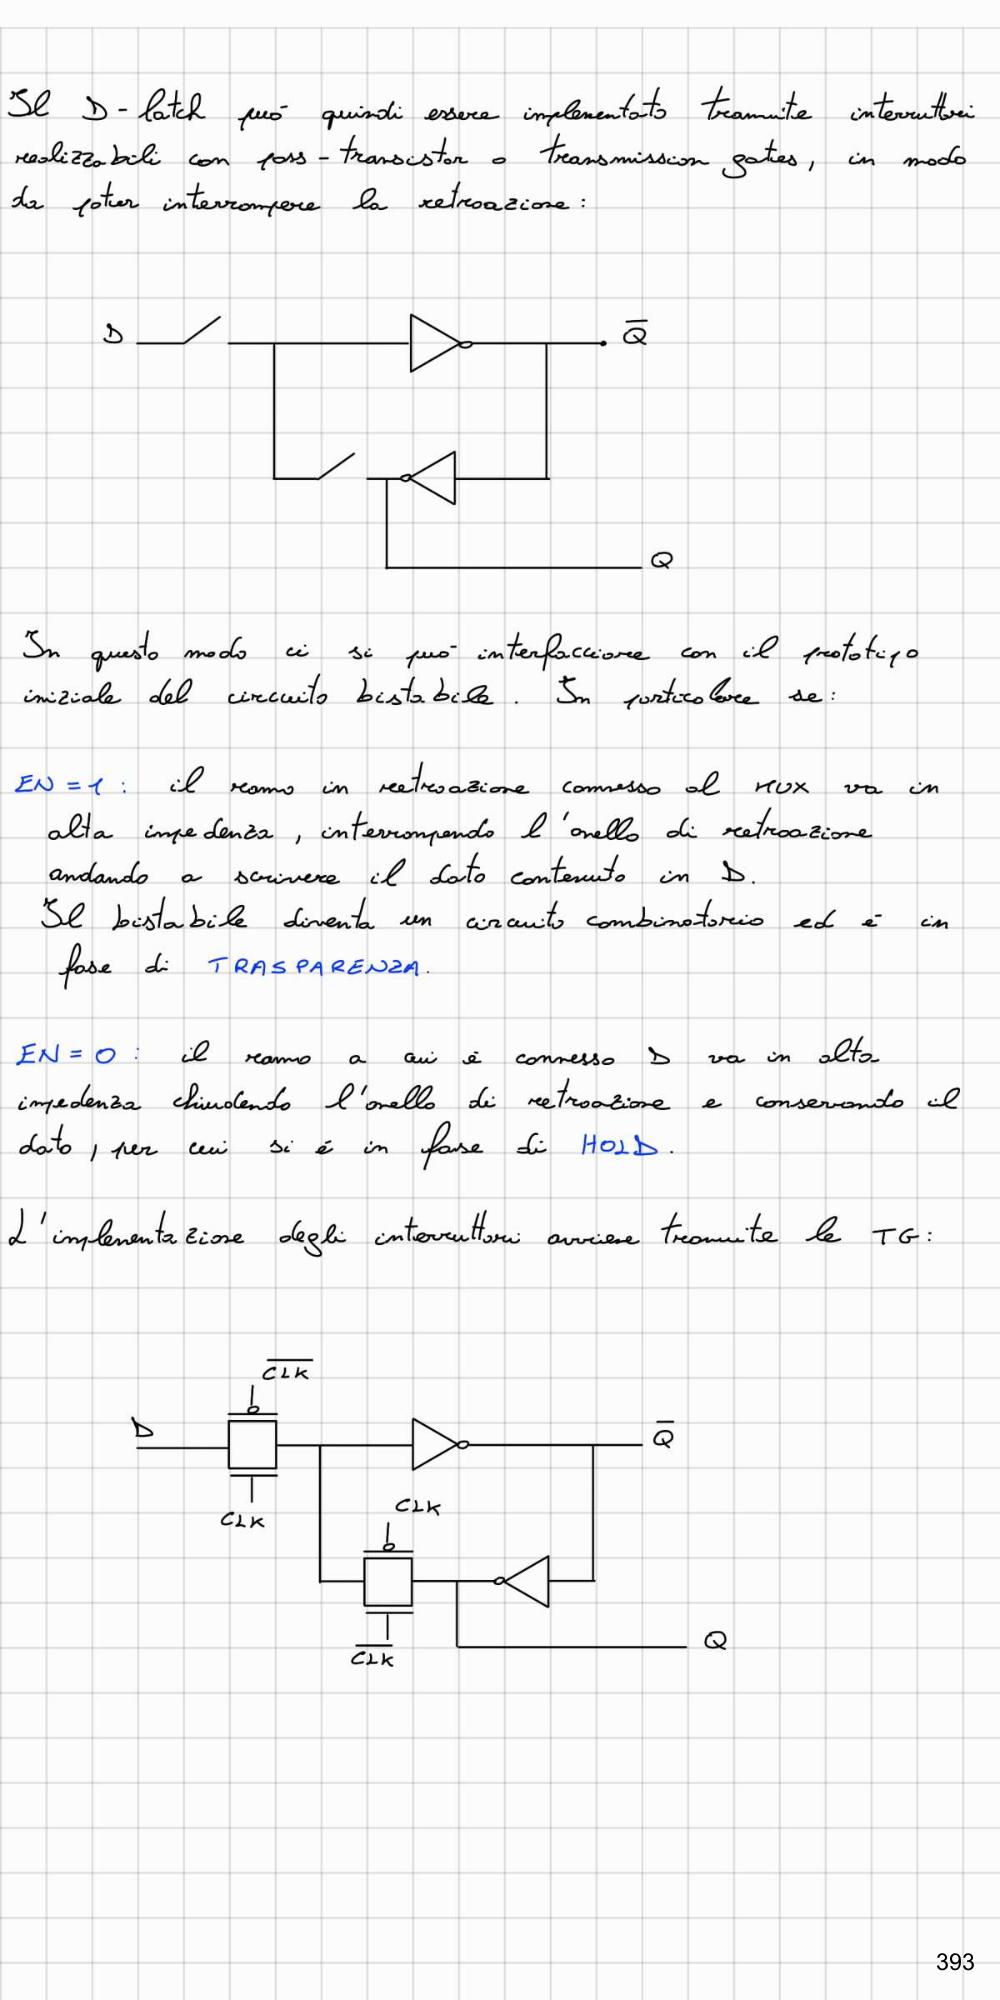 Il D-latch può quindi essere implementato tramite interruttori
realizzabili con pass-transistor o transmission gates, in modo
da poter interrompere la retroazione:
D
Q̅
Q
In questo modo ci si può interfacciare con il prototipo
iniziale del circuito bistabile. In particolare se:
EN = 1 : il ramo in retroazione connesso al MUX va in
alta impedenza, interrompendo l'anello di retroazione
andando a scrivere il dato contenuto in D.
Il bistabile diventa un circuito combinatorio ed è in
fase di TRASPARENZA.
EN = 0 : il ramo a cui è connesso D va in alta
impedenza chiudendo l'anello di retroazione e conservando il
dato, per cui si è in fase di HOLD.
L'implementazione degli interruttori avviene tramite le TG:
C̅L̅K̅
D
Q̅
CLK
CLK
C̅L̅K̅
Q
393